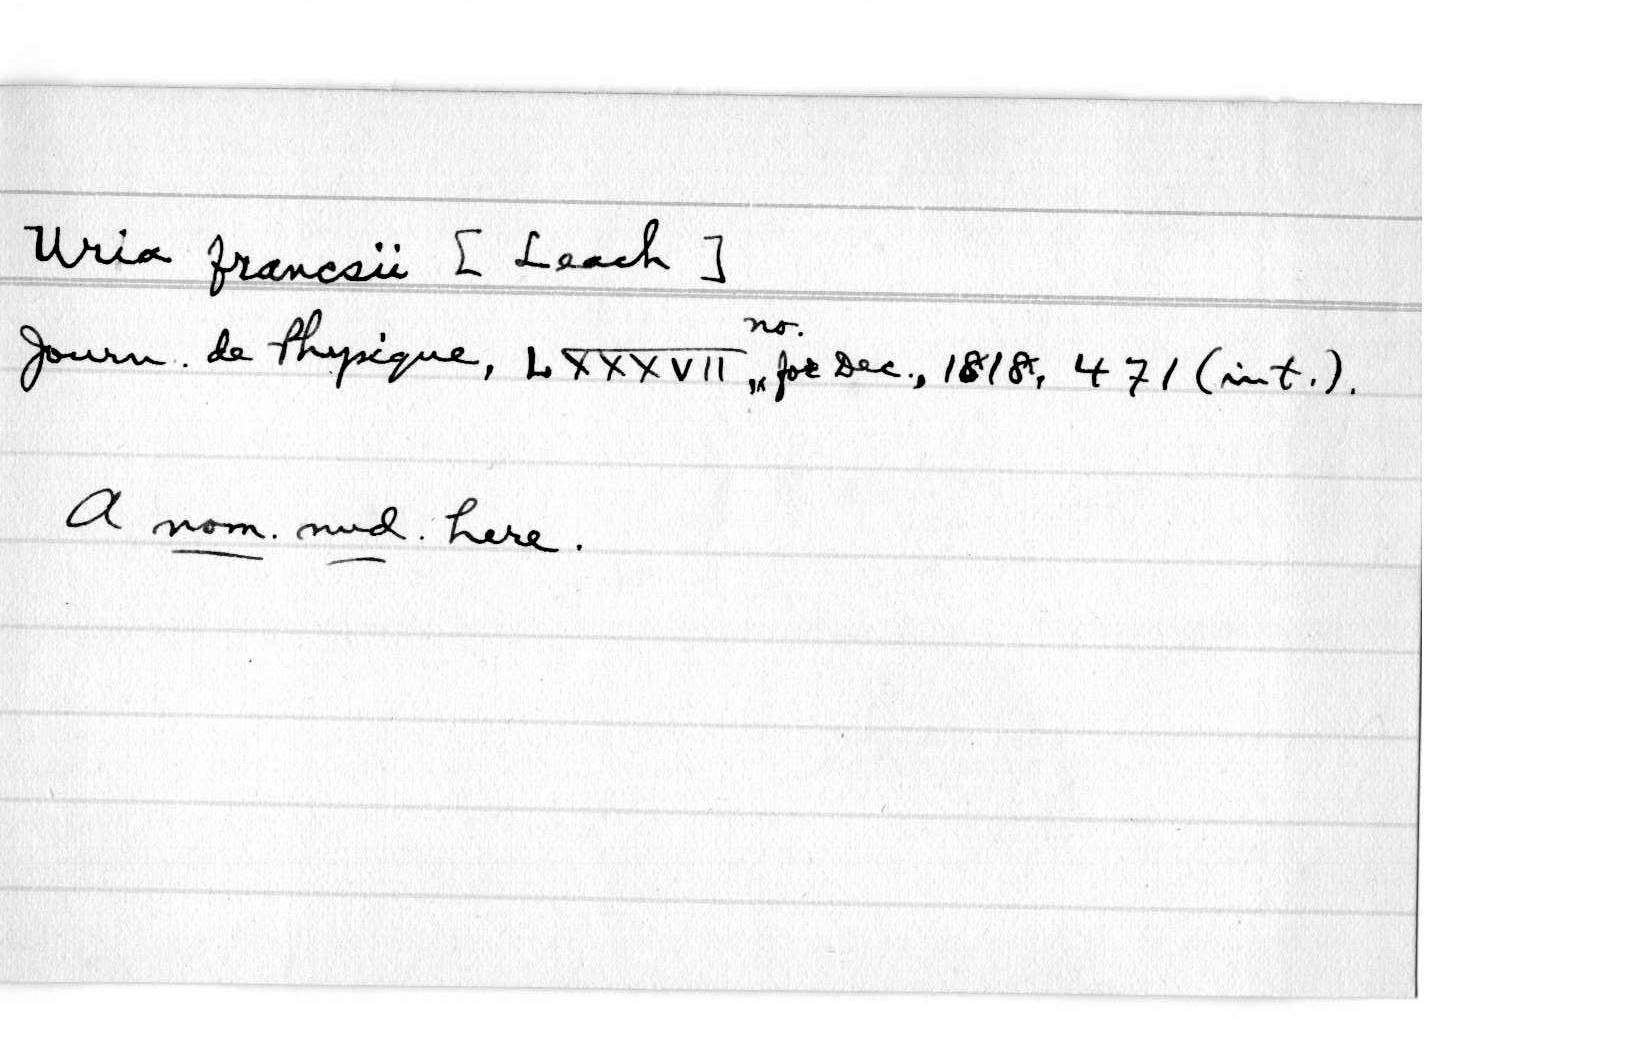 Uria francsii [Leach]
Journ. de Physique, LXXXVII, no. for Dec., 1818, 471 (int.).
A nom. nud. here.